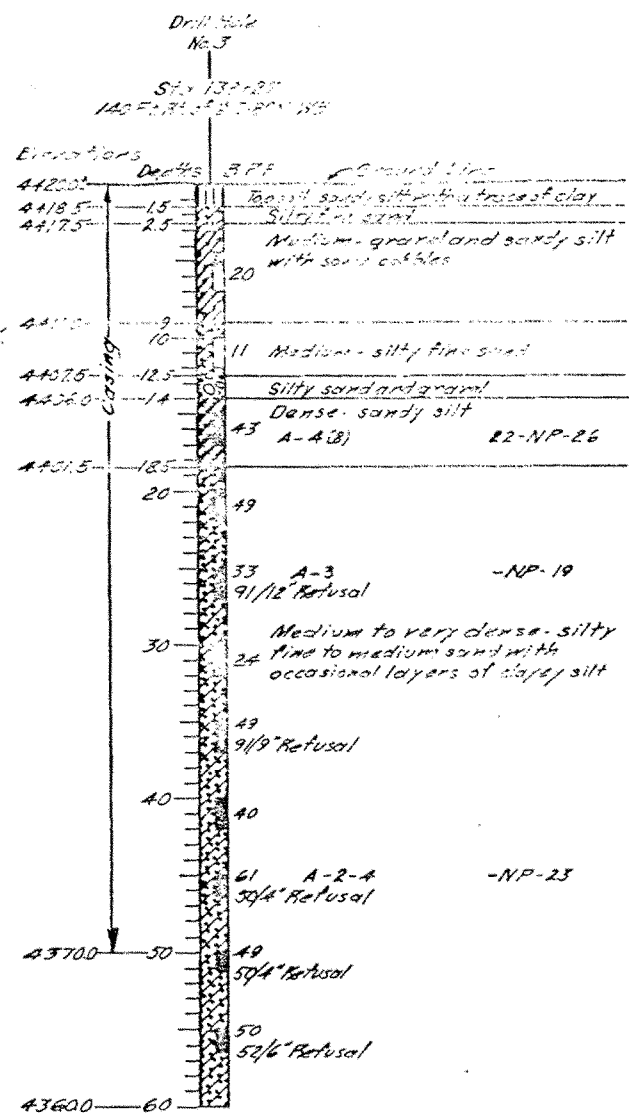 Drill Hole
No. 3
Sta 139+25
Elevations Depths B.P.F. Ground Line
4420.0±
Topsoil sandy silt with a trace of clay
4418.5 1.5
Silty fine sand
4417.5 2.5
Medium - gravel and sandy silt
with some cobbles
20
9
10
11 Medium - silty fine sand
4407.5 12.5
Silty sand and gravel
4406.0 14
Dense - sandy silt
43 A-4(8) 22-NP-26
4401.5 18.5
Casing
20
49
33 A-3 -NP-19
91/12" Refusal
Medium to very dense - silty
30
fine to medium sand with
24
occasional layers of clayey silt
49
91/9" Refusal
40
40
61 A-2-4 -NP-23
50/4" Refusal
4370.0 50 49
50/4" Refusal
50
52/6" Refusal
4360.0 60